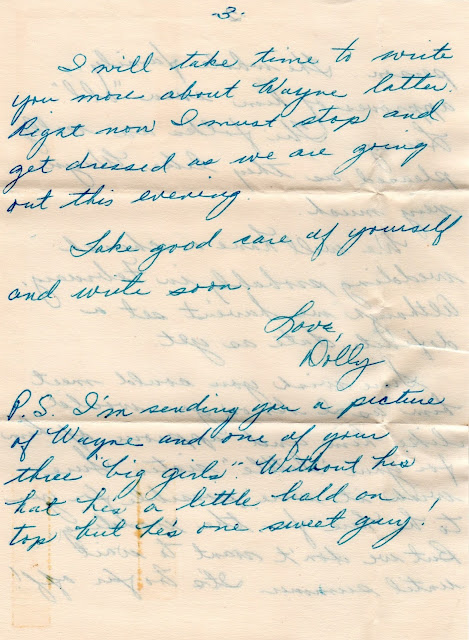 -3-
I will take time to write
you more about Wayne latter.
Right now I must stop and
get dressed as we are going
out this evening.
Take good care of yourself
and write soon.
Love,
Dolly
P.S. I'm sending you a picture
of Wayne and one of your
three "big girls". Without his
hat he's a little bald on
top but he's one sweet guy!